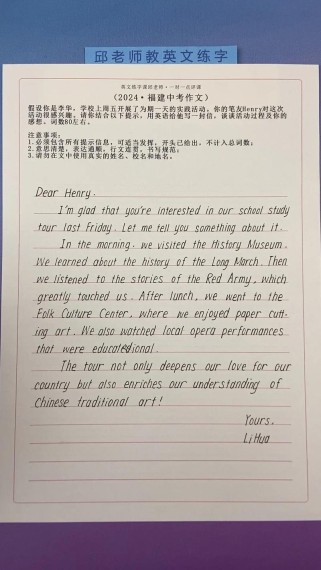 邱老师教英文练字
英文练字课邱老师·一封一点评课
（2024·福建中考作文）
假设你是李华，学校上周五开展了为期一天的实践活动，你的笔友Henry对这次
活动很感兴趣，请你结合以下提示，用英语给他写一封信，谈谈活动过程及你的
感想，词数80左右。
注意事项：
1.必须包含所有提示信息，可适当发挥，开头已给出，不计入总词数；
2.意思清楚，表达通顺，行文连贯，书写规范；
3.请勿在文中使用真实的姓名、校名和地名。
Dear Henry.
I'm glad that you're interested in our school study
tour last Friday. Let me tell you something about it.
In the morning. we visited the History Museum.
We learned about the history of the Long March. Then
we listened to the stories of the Red Army, which
greatly touched us. After lunch, we went to the
Folk Culture Center, where we enjoyed paper cutt-
ing art. We also watched local opera performances
that were educational.
The tour not only deepens our love for our
country but also enriches our understanding of
Chinese traditional art!
Yours.
Li Hua